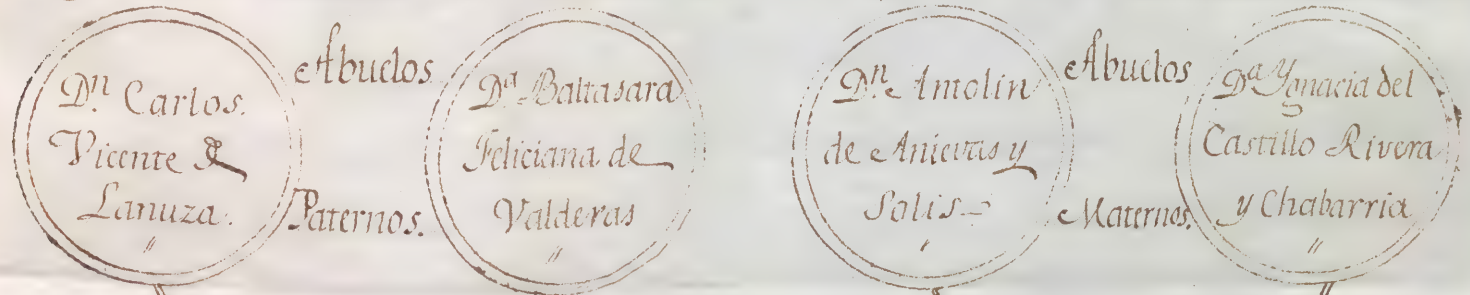 Dn. Carlos.
Vicente de
Lanuza.
Abuelos
Paternos.
Da. Baltasara
Feliciana de
Valderas
Dn. Antolin
de Anievas y
Solis
Abuelos
Maternos.
Da Ygnacia del
Castillo Rivera
y Chabarria